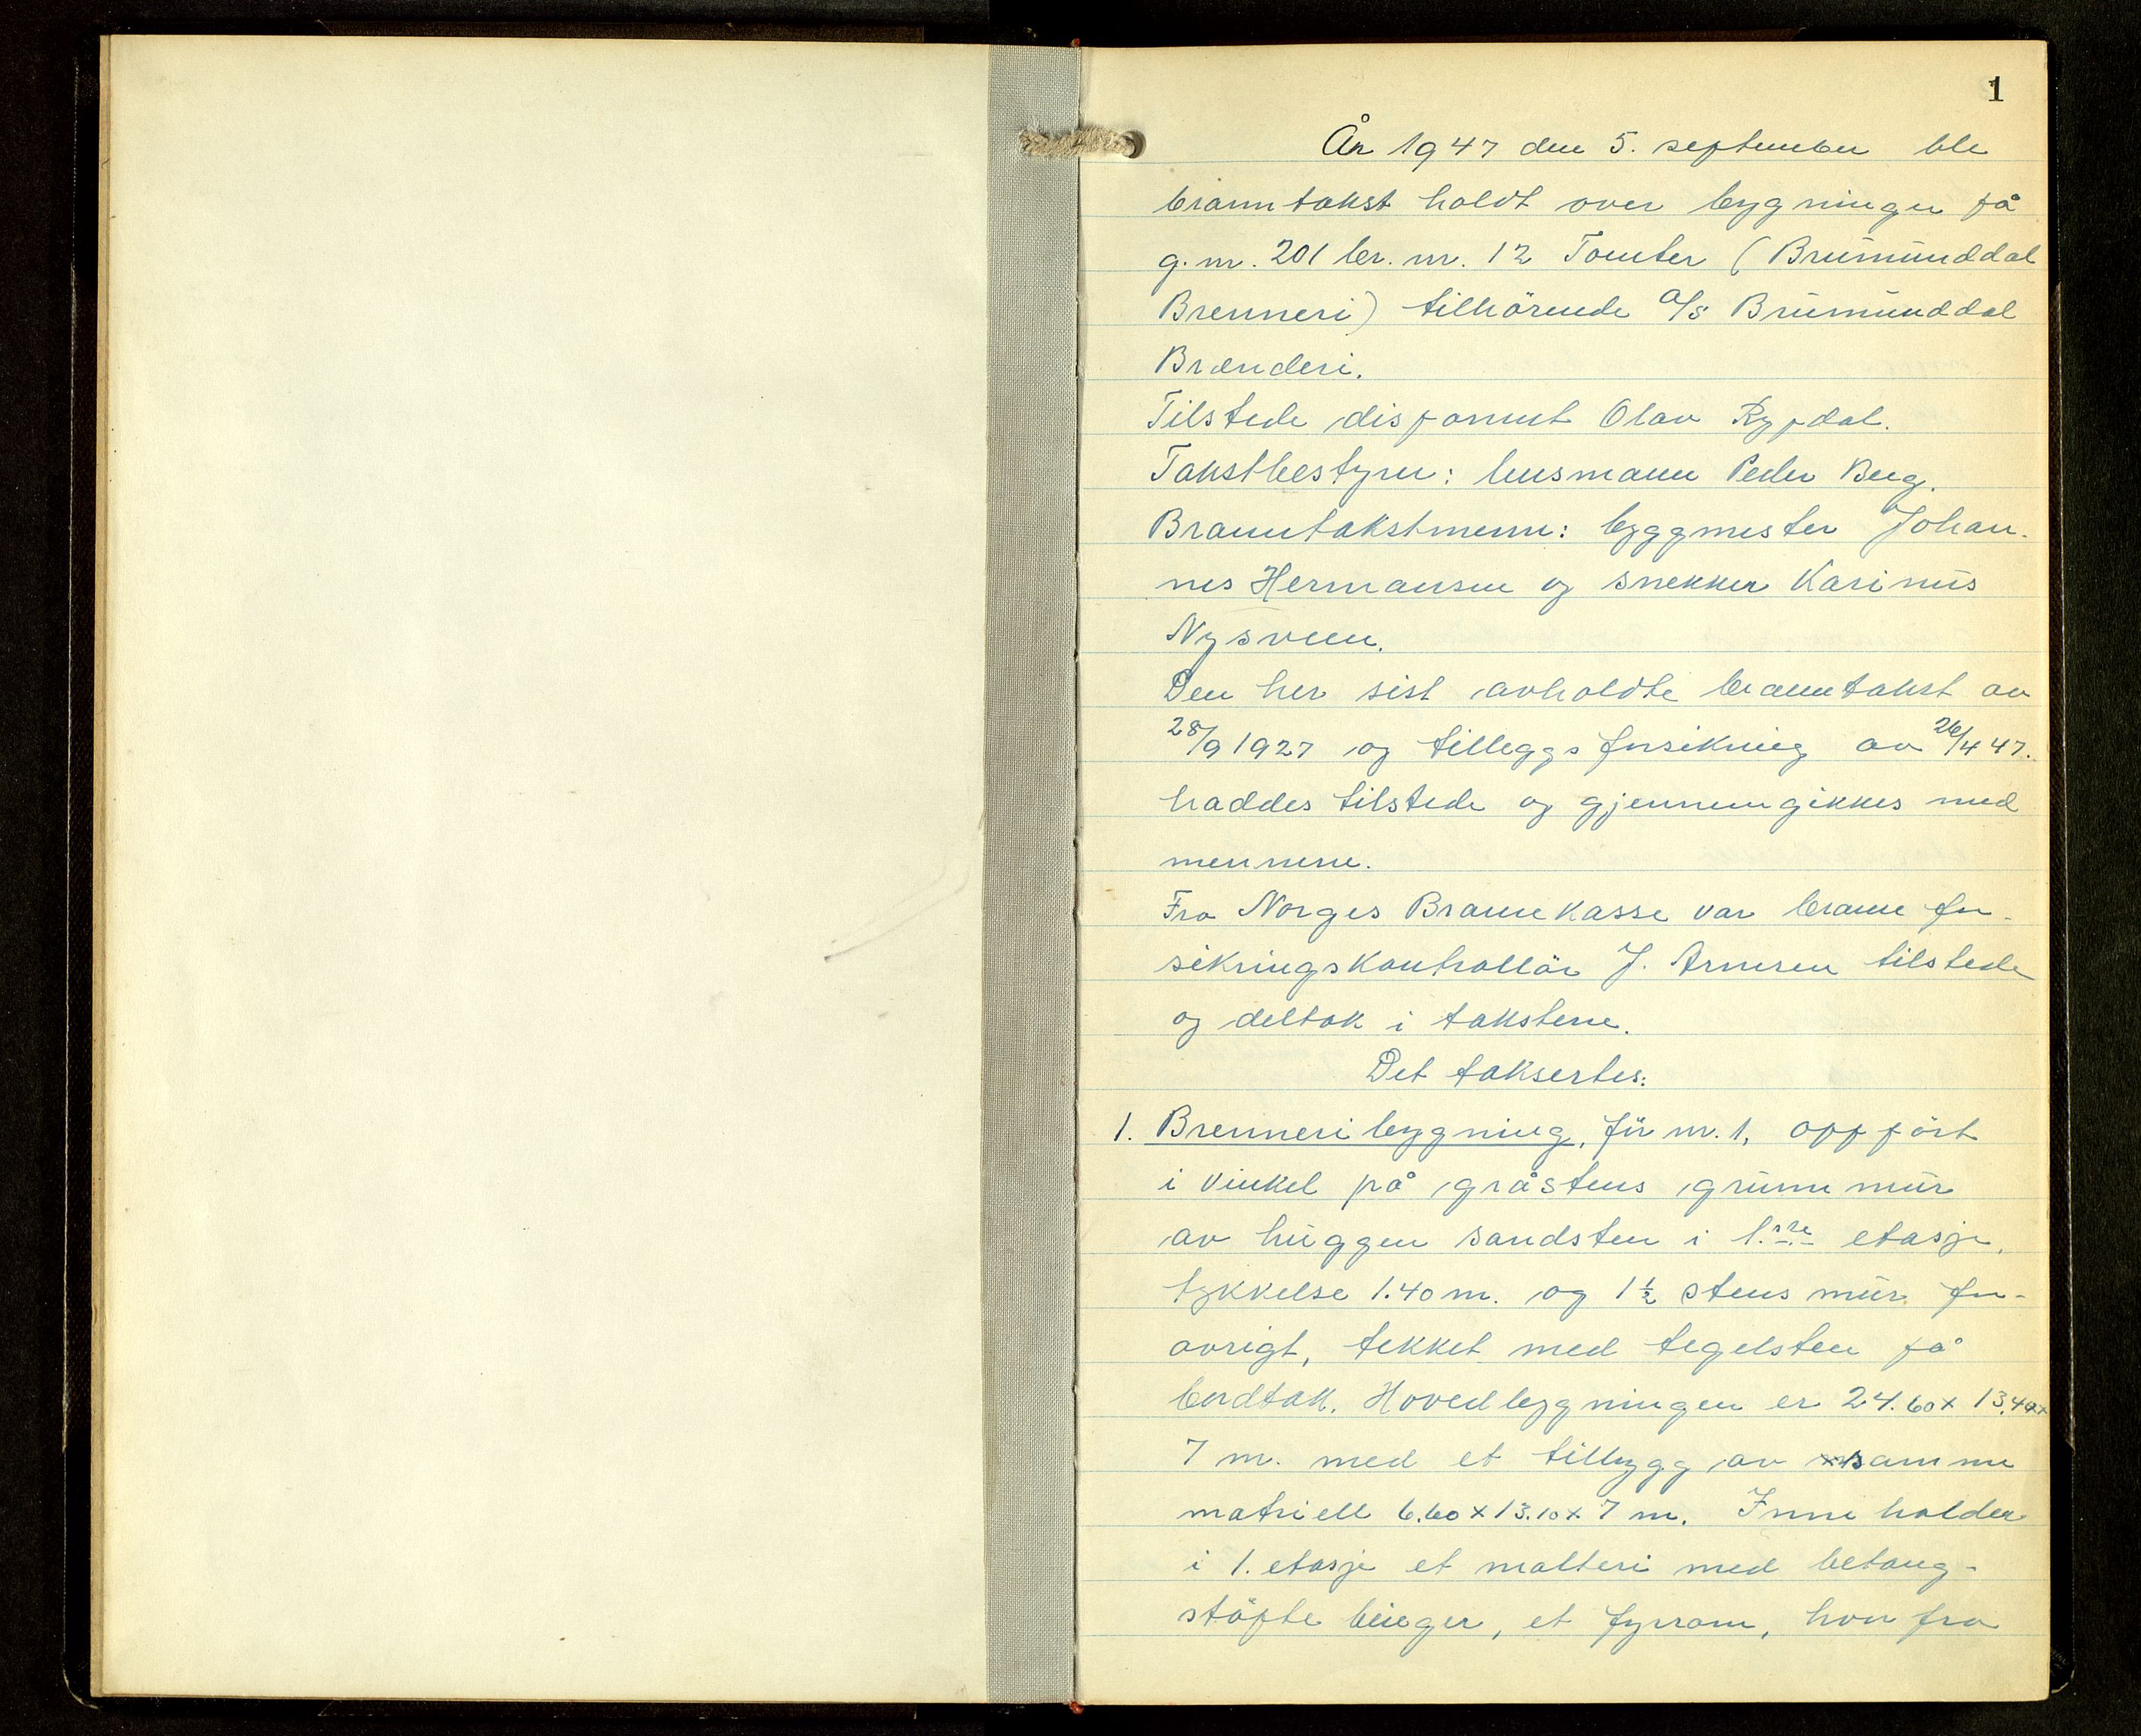 1
År 1947 den 5. september ble
branntakst holdt over bygninger på
g.nr. 201 br. nr. 12 Tomter (Brumunddal
Brenneri) tilhörende A/S Brumunddal
Brænderi.
Tilstede disponent Olav Rypdal.
Takstbestyrer: lensmann Peder Berg.
Branntakstmenn: byggmester Johan-
nes Hermansen og snekker Karinus
Nysveen.
Den her sist avholdte branntakst av
28/9 1927 og tilleggsforsikring av 26/4 47.
haddes tilstede og gjennemgikkes med
mennene.
Fra Norges Brannkasse var brannfor-
sikringskontrollör J. Arnesen tilstede
og deltok i takstene.
Det taksertes:
1. Brenneribygning, för nr. 1, oppfört
i vinkel på gråstens grunnmur
av huggen sandsten i 1.ste etasje,
tykkelse 1.40 m. og 1½ stens mur for-
övrigt, tekket med teglsten på
bordtak. Hovedbygningen er 24.60 x 13.40 x
7 m. med et tilbygg av samme
matriell 6.60 x 13.10 x 7 m. Inneholder
i 1. etasje et malteri med betong-
stöpte binger, et fyrrom, hvor fra